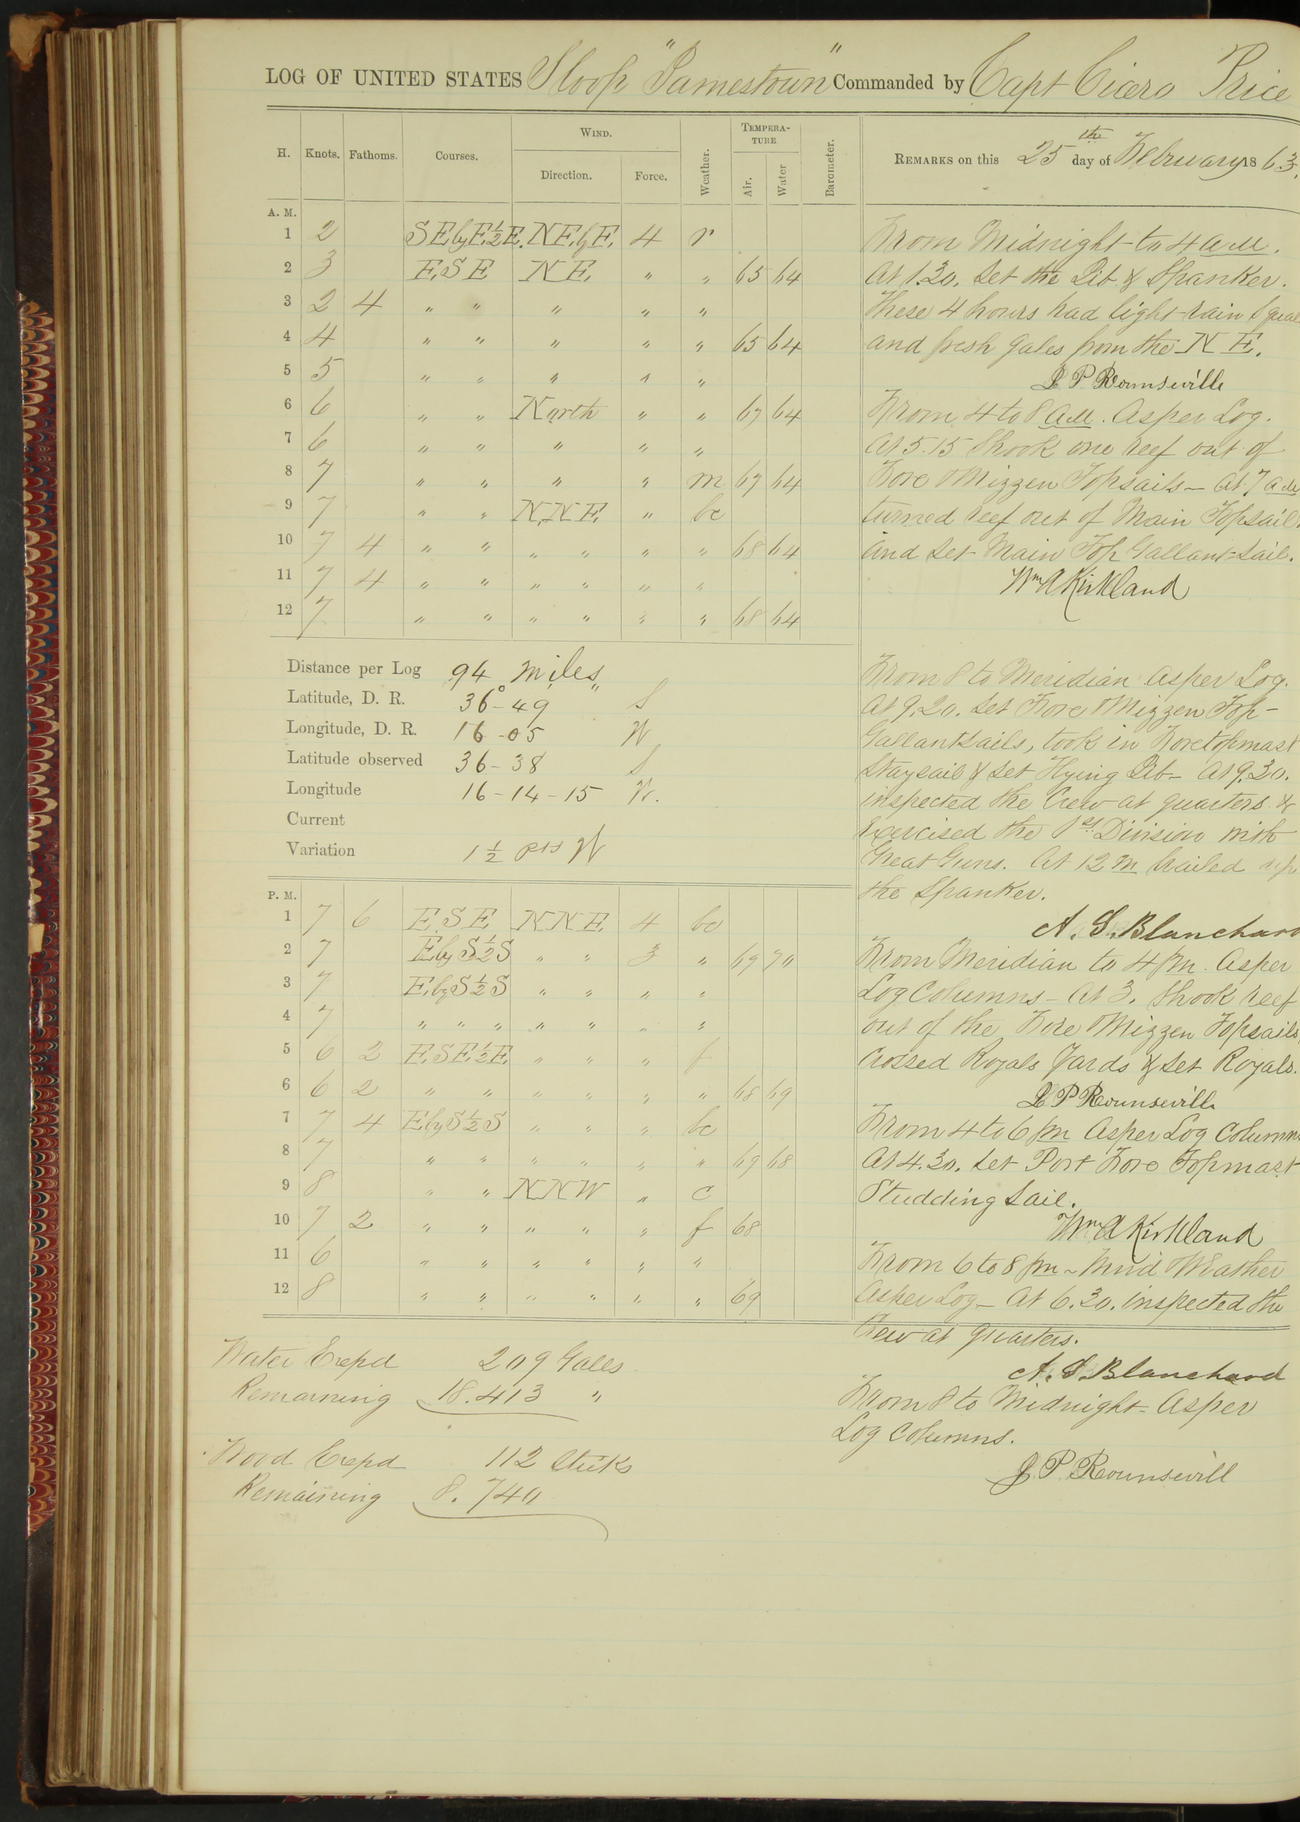 LOG OF UNITED STATES Sloop "Jamestown" Commanded by Capt Cicero Price
H. Knots. Fathoms. Courses. WIND. Direction. Force. Weather. TEMPERATURE Air. Water Barometer. REMARKS on this 25th day of February 1863.
A. M.
1 2 SEbyE½E. NE.byE. 4 r
2 3 E.S.E N E. " " 65 64
3 2 4 " " " " "
4 4 " " " " " 65 64
5 5 " " " " "
6 6 " " North " " 67 64
7 6 " " " " "
8 7 " " " " m 67 64
9 7 " " N.N.E. " bc
10 7 4 " " " " " " 68 64
11 7 4 " " " " " "
12 7 " " " " " " 68 64
From Midnight to 4 AM.
At 1.30. Set the Jib & Spanker.
These 4 hours had light rain Squal
and fresh gales from the N E.
J P Rounsevill
From 4 to 8 AM. As per Log.
At 5.15 Shook one reef out of
Fore & Mizzen Topsails – At 7 AM
turned reef out of Main Topsail.
and Set Main Top Gallant Sail.
Wm A Kirkland
Distance per Log 94 miles
Latitude, D. R. 36° - 49 " S
Longitude, D. R. 16 - 05 W
Latitude observed 36 - 38 S
Longitude 16 - 14 - 15 W.
Current
Variation 1 ½ pts W
From 8 to Meridian As per Log.
At 9.20. Set Fore & Mizzen Top-
Gallantsails, took in Foretopmast
Staysail & Set Flying Jib – At 9.30.
inspected the Crew at quarters &
Exercised the 1st Division with
Great Guns. At 12 M hailed up
the Spanker.
A. S. Blanchard
P. M.
1 7 6 E.S.E N N E 4 bc
2 7 EbyS½S " " 3 " 69 70
3 7 E.byS½S " " " "
4 7 " " " " " " "
5 6 2 ESE½E " " " f
6 6 2 " " " " " " 68 69
7 7 4 EbyS½S " " " bc
8 7 " " " " " " 69 68
9 8 " " NNW " c
10 7 2 " " " " " f 68
11 6 " " " " " "
12 8 " " " " " " 69
From Meridian to 4 PM. As per
Log Columns – At 3. Shook reef
out of the Fore & Mizzen Topsails,
Crossed Royals Yards & Set Royals.
J P Rounsevill
From 4 to 6 PM As per Log Columns
At 4.30. Set Port Fore Topmast
Studding Sail.
Wm A Kirkland
From 6 to 8 PM – Mild Weather
As per Log – At 6.30. inspected the
Crew at quarters.
A. S. Blanchard
From 8 to Midnight – As per
Log Columns.
J P Rounsevill
Water Expd 209 Galls
Remaining 18.413 "
Wood Expd 112 Sticks
Remaining 8.740